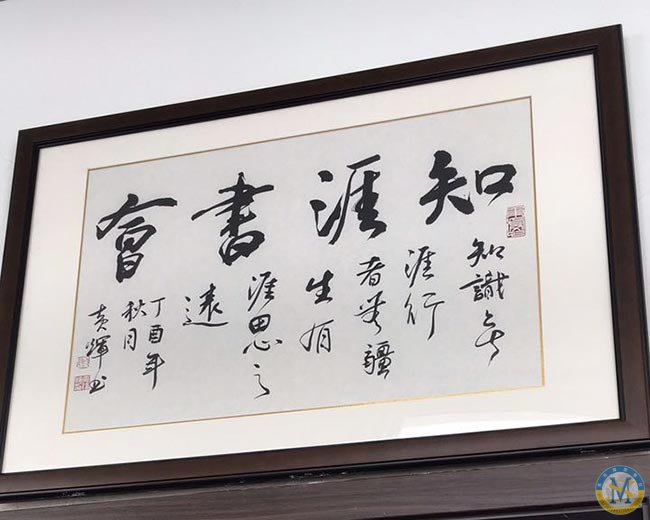 知涯書會
知識無
涯行
者無疆
生有
涯思之
遠
丁酉年
秋月
輝书